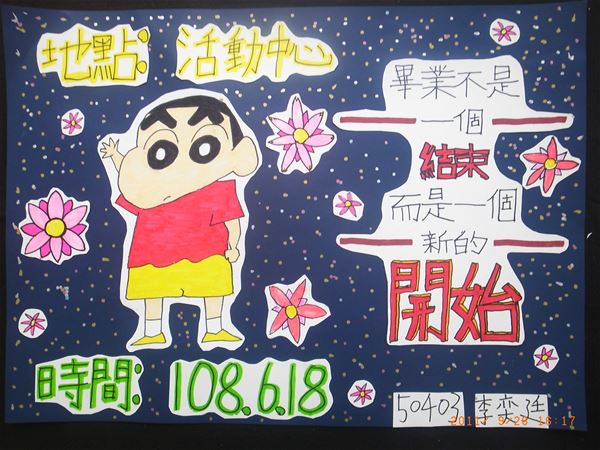 地點: 活動中心
畢業不是
一個
結束
而是一個
新的
開始
時間: 108.6.18
50403 李奕廷
2011 9 28 16:17